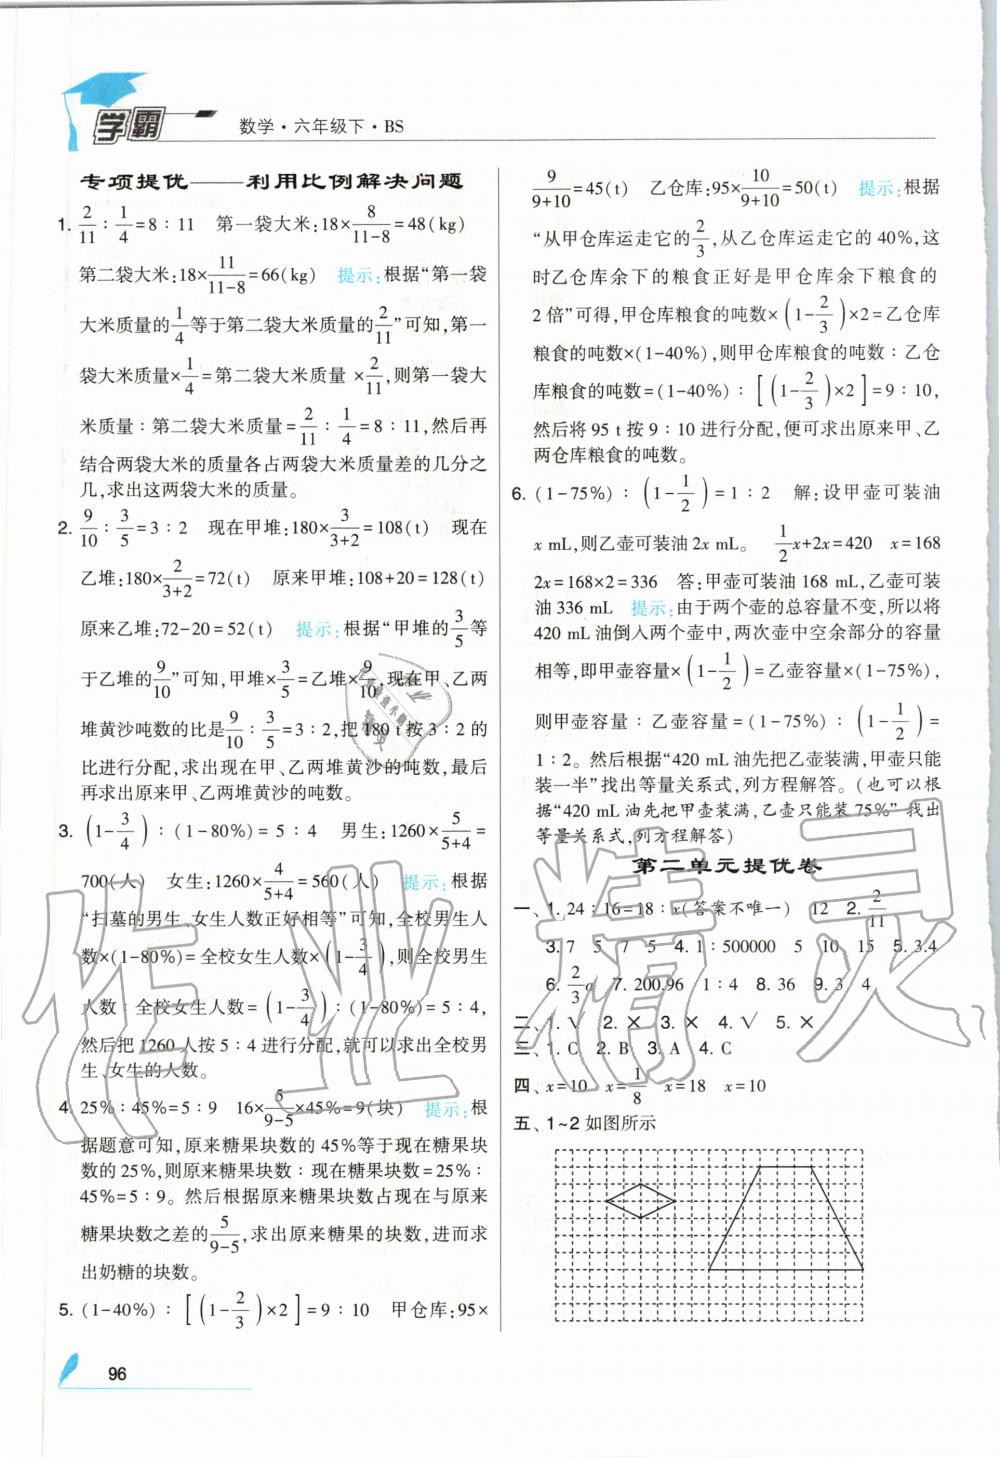 学霸
数学·六年级下·BS
专项提优——利用比例解决问题
1. 2/11∶1/4=8∶11 第一袋大米:18×8/(11-8)=48(kg)
第二袋大米:18×11/(11-8)=66(kg) 提示:根据“第一袋
大米质量的1/4等于第二袋大米质量的2/11”可知,第一
袋大米质量×1/4=第二袋大米质量×2/11,则第一袋大
米质量∶第二袋大米质量=2/11∶1/4=8∶11,然后再
结合两袋大米的质量各占两袋大米质量差的几分之
几,求出这两袋大米的质量。
2. 9/10∶3/5=3∶2 现在甲堆:180×3/(3+2)=108(t) 现在
乙堆:180×2/(3+2)=72(t) 原来甲堆:108+20=128(t)
原来乙堆:72-20=52(t) 提示:根据“甲堆的3/5等
于乙堆的9/10”可知,甲堆×3/5=乙堆×9/10,现在甲、乙两
堆黄沙吨数的比是9/10∶3/5=3∶2,把180 t按3∶2的
比进行分配,求出现在甲、乙两堆黄沙的吨数,最后
再求出原来甲、乙两堆黄沙的吨数。
3. (1-3/4)∶(1-80%)=5∶4 男生:1260×5/(5+4)=
700(人) 女生:1260×4/(5+4)=560(人) 提示:根据
“扫墓的男生、女生人数正好相等”可知,全校男生人
数×(1-80%)=全校女生人数×(1-3/4),则全校男生
人数∶全校女生人数=(1-3/4)∶(1-80%)=5∶4,
然后把1260人按5∶4进行分配,便可求出全校男
生、女生的人数。
4. 25%∶45%=5∶9 16×5/(9-5)×45%=9(块) 提示:根
据题意可知,原来糖果块数的45%等于现在糖果块
数的25%,则原来糖果块数∶现在糖果块数=25%∶
45%=5∶9。然后根据原来糖果块数占现在与原来
糖果块数之差的5/(9-5),求出原来糖果的块数,进而求
出奶糖的块数。
5. (1-40%)∶[(1-2/3)×2]=9∶10 甲仓库:95×
9/(9+10)=45(t) 乙仓库:95×10/(9+10)=50(t) 提示:根据
“从甲仓库运走它的2/3,从乙仓库运走它的40%,这
时乙仓库余下的粮食正好是甲仓库余下粮食的
2倍”可得,甲仓库粮食的吨数×(1-2/3)×2=乙仓库
粮食的吨数×(1-40%),则甲仓库粮食的吨数∶乙仓
库粮食的吨数=(1-40%)∶[(1-2/3)×2]=9∶10,
然后将95 t按9∶10进行分配,便可求出原来甲、乙
两仓库粮食的吨数。
6. (1-75%)∶(1-1/2)=1∶2 解:设甲壶可装油
x mL,则乙壶可装油2x mL。 1/2x+2x=420 x=168
2x=168×2=336 答:甲壶可装油168 mL,乙壶可装
油336 mL 提示:由于两个壶的总容量不变,所以将
420 mL油倒入两个壶中,两次壶中空余部分的容量
相等,即甲壶容量×(1-1/2)=乙壶容量×(1-75%),
则甲壶容量∶乙壶容量=(1-75%)∶(1-1/2)=
1∶2。然后根据“420 mL油先把乙壶装满,甲壶只能
装一半”找出等量关系式,列方程解答。(也可以根
据“420 mL油先把甲壶装满,乙壶只能装75%”找出
等量关系式,列方程解答)
第二单元提优卷
一、1. 24∶16=18∶x(答案不唯一) 12 2. 2/11
3. 7 5 7 5 4. 1∶500000 5 10 15 5. 3.4
6. 2/3a 7. 200.96 1∶4 8. 36 9. 3.4
二、1. √ 2. × 3. × 4. √ 5. ×
三、1. C 2. B 3. A 4. C
四、x=10 x=1/8 x=18 x=10
五、1~2如图所示
96
作业精灵